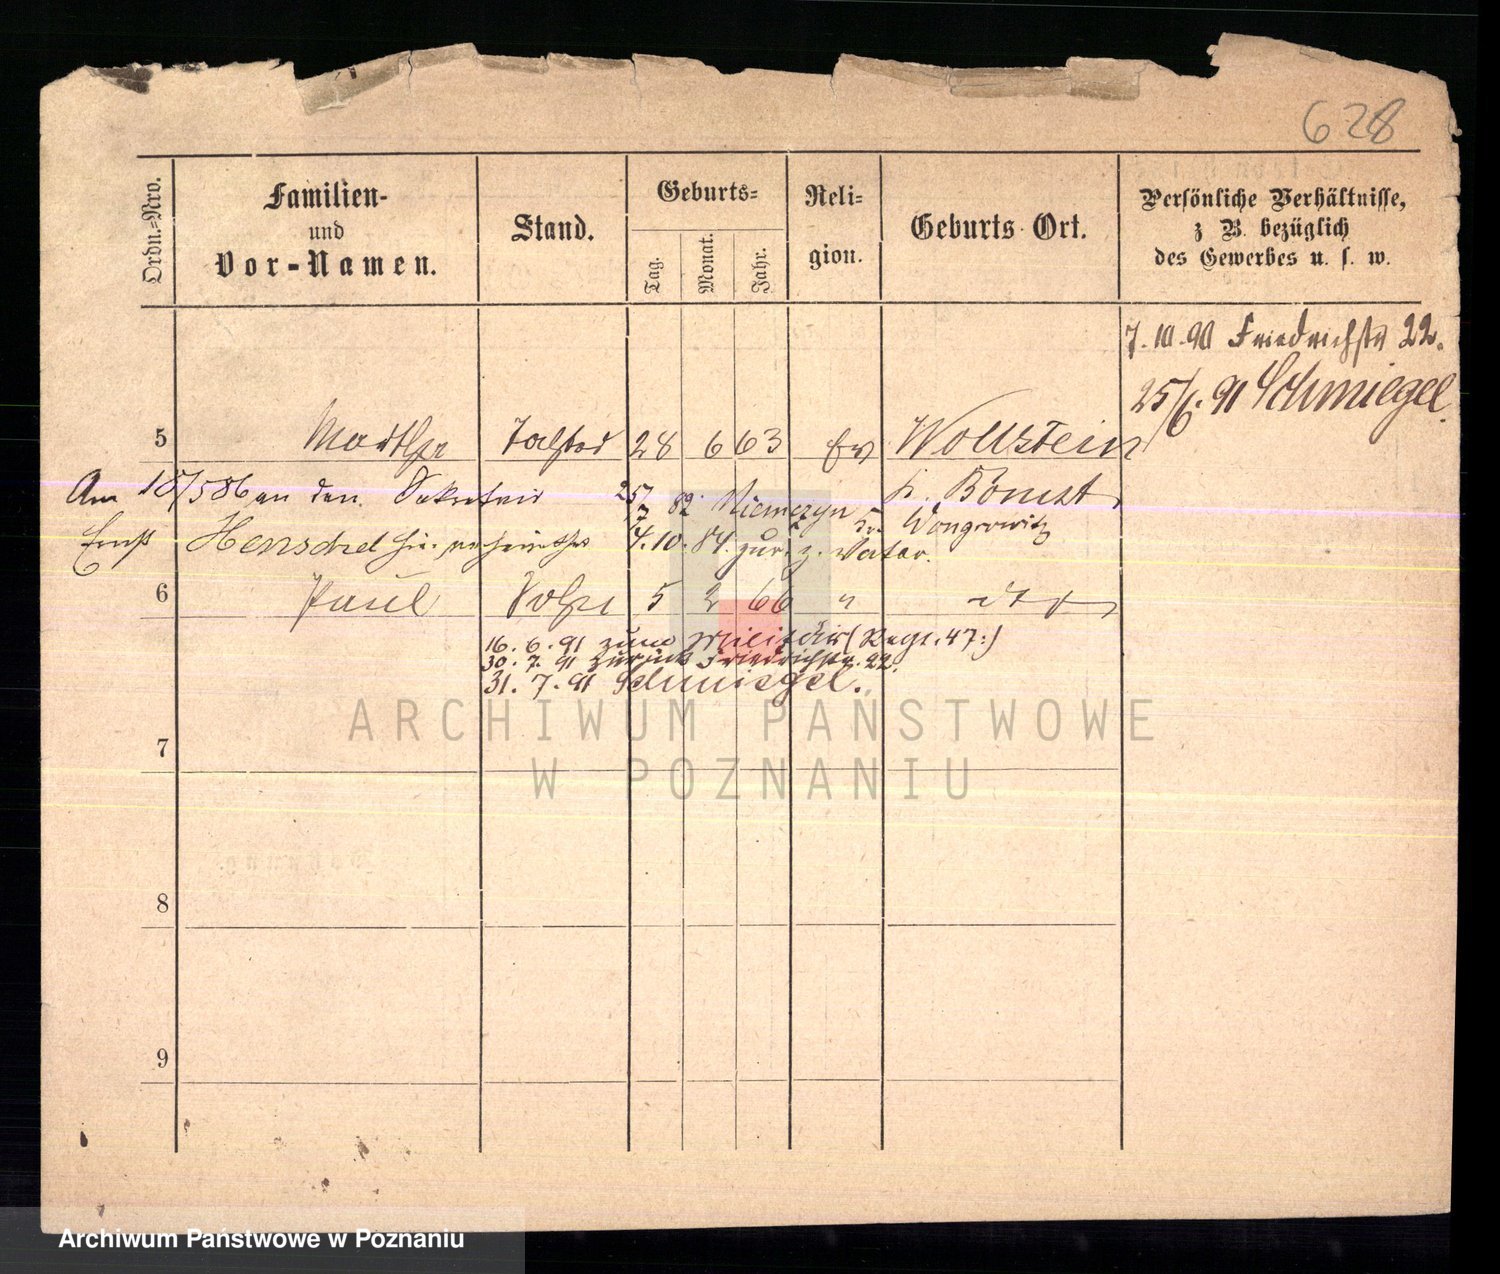 628
Ordn.-Nro.
Familien-
und
Vor-Namen.
Stand.
Geburts-
Tag.
Monat.
Jahr.
Reli-
gion.
Geburts-Ort.
Persönliche Verhältnisse,
z B. bezüglich
des Gewerbes u. s. w.
7.10.90 Friedrichstr 22.
25/6. 91 Schmiegel.
5 Martha Tochter 28 6 63 Ev Wollstein
Am 18/5 86 an den Sekretair 25/3 82 Niemczyn Kr. Bomst
Ernst Henschel hier verheirathet 4.10.84. zur. z. Vater. Kr. Wongrowitz
6 Paul Sohn 5 2 66 " dto
16. 6. 91 zum Militär (Regt. 47:)
30. 7. 91 zurück Friedrichstr. 22.
31. 7. 91 Schmiegel.
ARCHIWUM PAŃSTWOWE
W POZNANIU
7
8
9
Archiwum Państwowe w Poznaniu